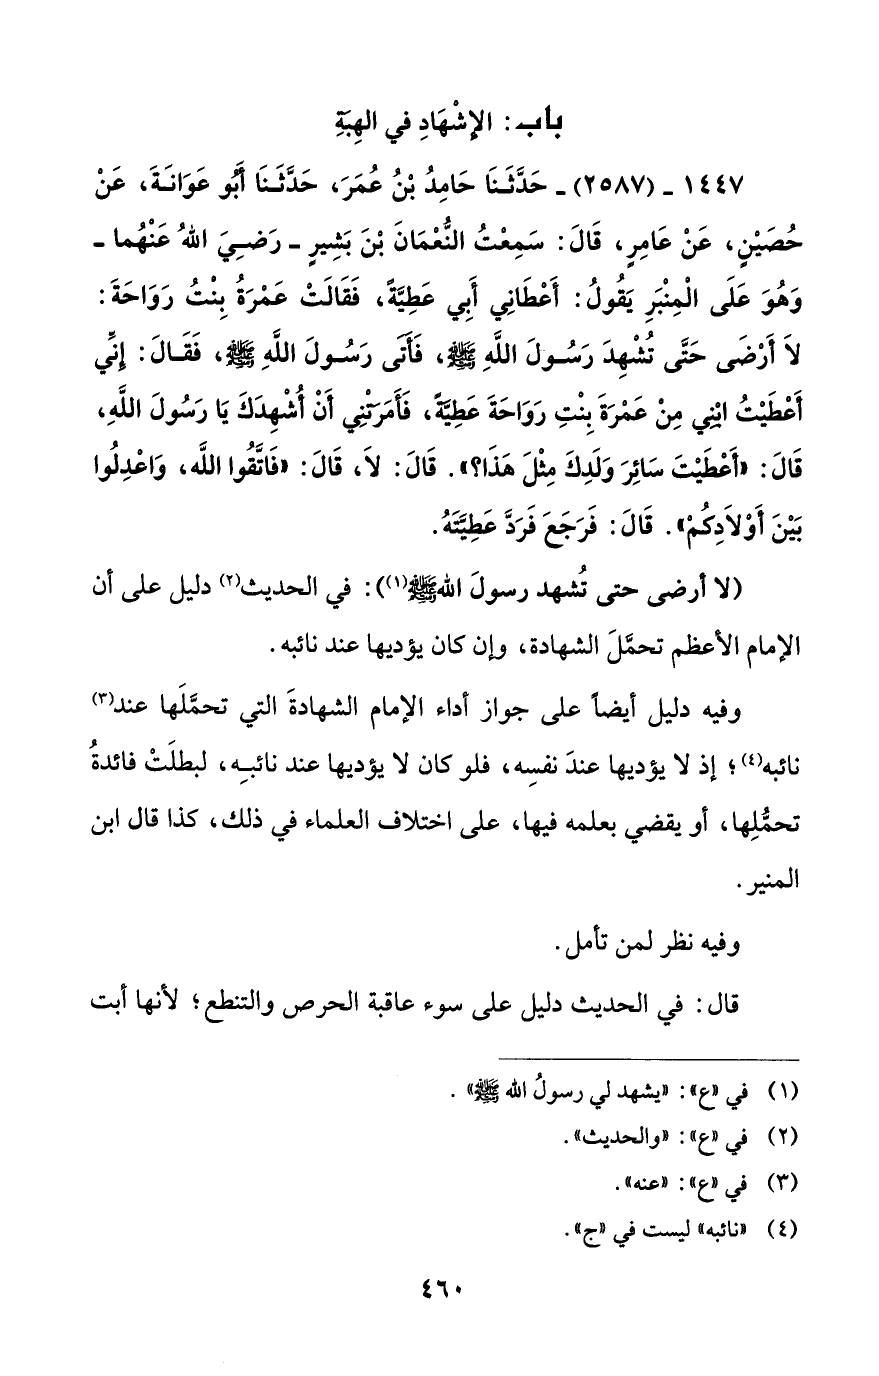 باب: الإِشْهَادِ في الهِبَةِ
١٤٤٧ ـ (٢٥٨٧) ـ حَدَّثَنَا حَامِدُ بْنُ عُمَرَ، حَدَّثَنَا أَبُو عَوَانَةَ، عَنْ
حُصَيْنٍ، عَنْ عَامِرٍ، قَالَ: سَمِعْتُ النُّعْمَانَ بْنَ بَشِيرٍ ـ رَضِيَ اللهُ عَنْهُما ـ
وَهُوَ عَلَى الْمِنْبَرِ يَقُولُ: أَعْطَانِي أَبِي عَطِيَّةً، فَقَالَتْ عَمْرَةُ بِنْتُ رَوَاحَةَ:
لاَ أَرْضَى حَتَّى تُشْهِدَ رَسُولَ اللَّهِ ﷺ، فَأَتَى رَسُولَ اللَّهِ ﷺ، فَقَالَ: إِنِّي
أَعْطَيْتُ ابْنِي مِنْ عَمْرَةَ بِنْتِ رَوَاحَةَ عَطِيَّةً، فَأَمَرَتْنِي أَنْ أُشْهِدَكَ يَا رَسُولَ اللَّهِ،
قَالَ: «أَعْطَيْتَ سَائِرَ وَلَدِكَ مِثْلَ هَذَا؟». قَالَ: لاَ، قَالَ: «فَاتَّقُوا اللَّه، وَاعْدِلُوا
بَيْنَ أَوْلاَدِكُمْ». قَالَ: فَرَجَعَ فَرَدَّ عَطِيَّتَهُ.
(لا أرضى حتى تُشهد رسولَ اللهﷺ(١)): في الحديث(٢) دليل على أن
الإمام الأعظم تحمَّلَ الشهادة، وإن كان يؤديها عند نائبه.
وفيه دليل أيضاً على جواز أداء الإمام الشهادةَ التي تحمَّلَها عند(٣)
نائبه(٤)؛ إذ لا يؤديها عندَ نفسِه، فلو كان لا يؤديها عند نائبِه، لبطلَتْ فائدةُ
تحمُّلِها، أو يقضي بعلمه فيها، على اختلاف العلماء في ذلك، كذا قال ابن
المنير.
وفيه نظر لمن تأمل.
قال: في الحديث دليل على سوء عاقبة الحرص والتنطع؛ لأنها أبت
(١) في «ع»: «يشهد لي رسولُ الله ﷺ».
(٢) في «ع»: «والحديث».
(٣) في «ع»: «عنه».
(٤) «نائبه» ليست في «ج».
٤٦٠